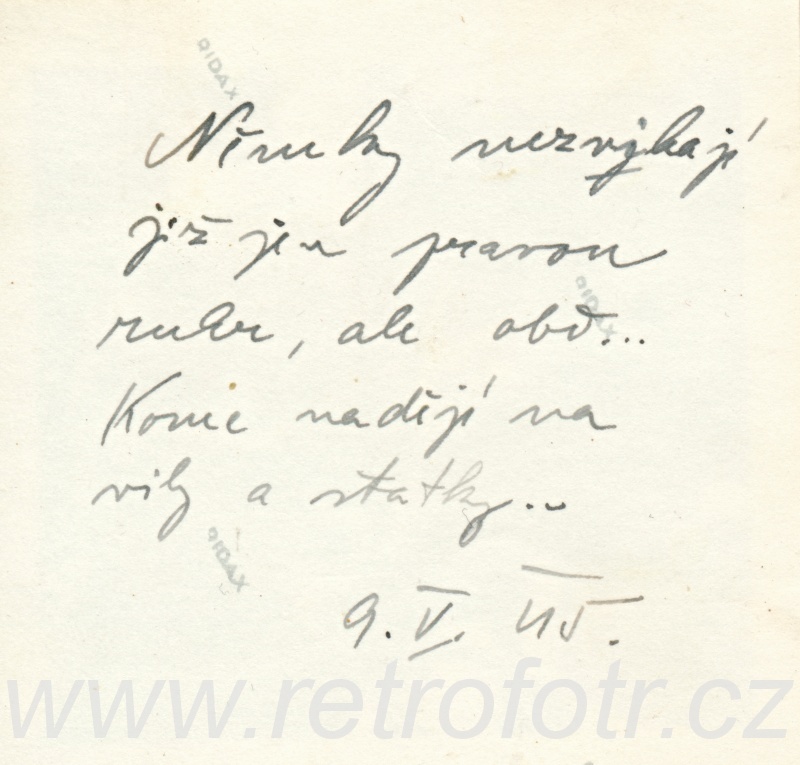 RIDAX
Němky nezvýhají
již jen pravou
RIDAX
ruku, ale obě...
Konec nadějí na
vily a statky...
RIDAX
9. V. 45.
www.retrofotr.cz